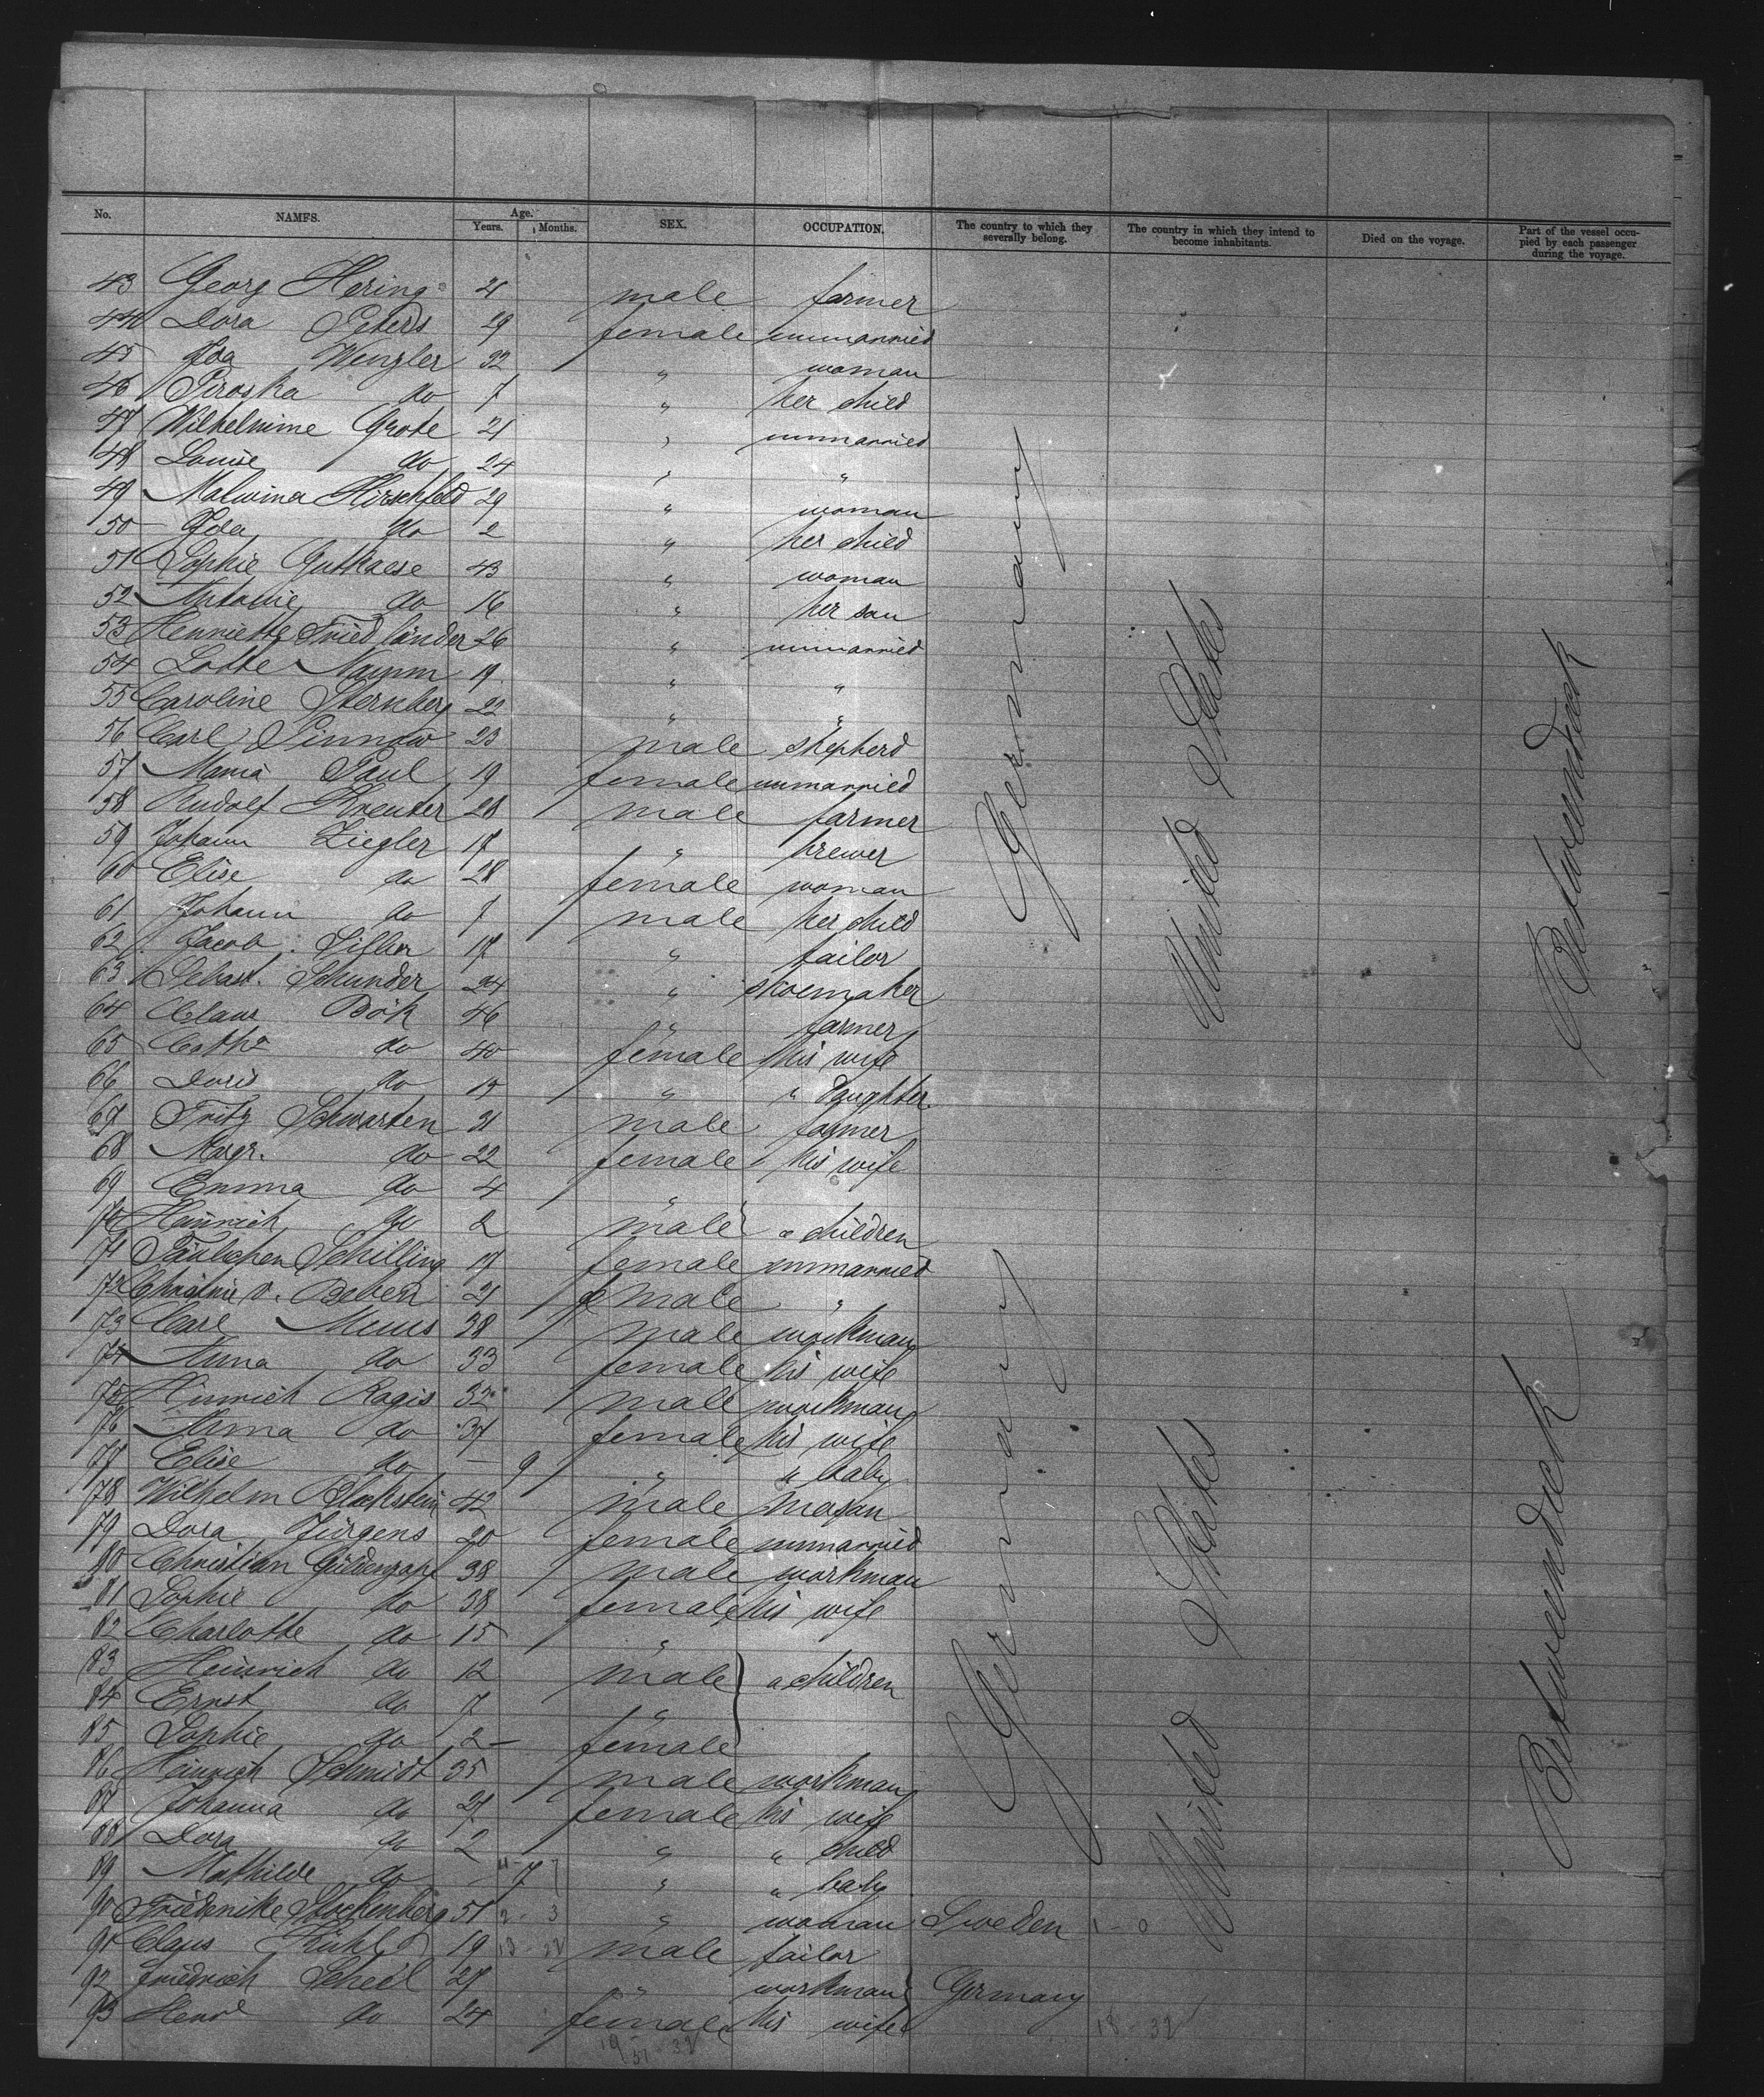 No. NAMES. Age. Years. Months. SEX. OCCUPATION. The country to which they severally belong. The country in which they intend to become inhabitants. Died on the voyage. Part of the vessel occupied by each passenger during the voyage.
43 Georg Hering 21 male farmer
44 Dora Peters 29 female unmarried
45 Ida Wenzler 32 " woman
46 Piroska do 7 " her child
47 Wilhelmine Grote 21 " unmarried
48 Louise do 24 " "
49 Malwina Hirschfeld 29 " woman
50 Ida do 2 " her child
51 Sophie Guthaese 43 " woman
52 Antonie do 16 " her son
53 Henriette Friedländer 26 " unmarried
54 Lotte 19 " "
55 Caroline Sternberg 22 " "
56 Carl Pinnow 23 male shepherd
57 Maria Paul 19 female unmarried
58 Rudolf Kreuter 28 male farmer
59 Johann Ziegler 17 " brewer
60 Elise do 28 female woman
61 Johann do male her child
62 Jacob 17 " tailor
63 Sebast. Schunder 24 " shoemaker
64 Claus Bök 46 " farmer
65 Catha do 40 female his wife
66 Doris do " " daughter
67 Fritz Schwarten 31 male farmer
68 Margr. do 22 female his wife
69 Emma do 4 "
70 Heinrich do 2 male " children
71 Paulchen Schilling 17 female unmarried
72 Christine v. 21 fmale "
73 Carl Meuis 38 male workman
74 Anna do 33 female his wife
75 Hinrich Ragis 32 male workman
76 Anna do 37 female his wife
77 Elise do — 9 " " baby
78 Wilhelm Blackstein 42 male mason
79 Dora Jürgens 20 female unmarried
80 Christian Güldenzapf 38 male workman
81 Sophie do 38 female his wife
82 Charlotte do 15 "
83 Heinrich do 12 male " children
84 Ernst do 7 "
85 Sophie do 2 — female
86 Heinrich Schmidt 35 male workman
87 Johanna do 27 female his wife
88 Dora do 2 " " child
89 Mathilde do — 7 " " baby
90 Friederike Stockenberg 51 " woman Sweden
91 Claus Kühl 19 male tailor
92 Friedrich Scheel 27 " workman Germany
93 Henr. do 24 female his wife
Germany
United States
Betweendeck
Germany
United States
Betweendeck